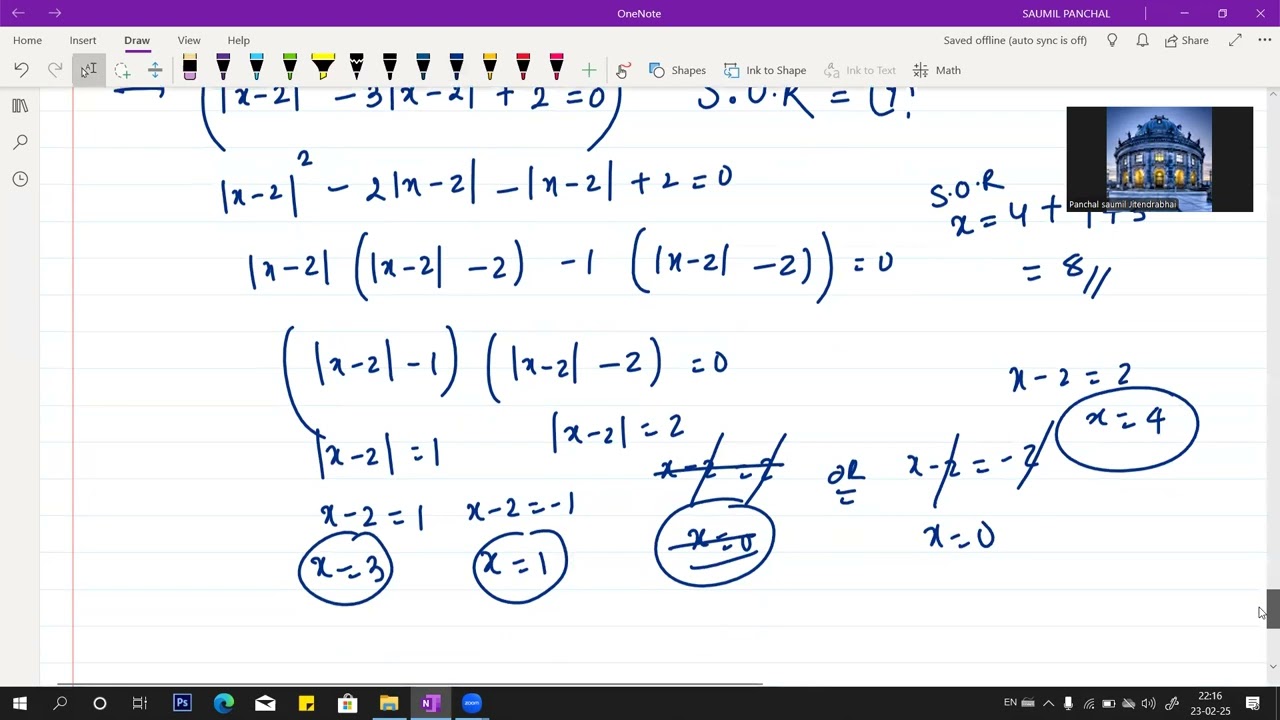 OneNote
SAUMIL PANCHAL
Home Insert Draw View Help
Saved offline (auto sync is off)
Share
Shapes
Ink to Shape
Ink to Text
Math
|x-2| - 3|x-2| + 2 = 0) S.O.R =
|x-2|² - 2|x-2| - |x-2| + 2 = 0
|x-2| (|x-2| - 2) - 1 (|x-2| - 2)) = 0
(|x-2| - 1) (|x-2| - 2) = 0
|x-2| = 1
x-2 = 1 x-2 = -1
x = 3 x = 1
|x-2| = 2
x-2 = 2
x = 0
OR
x-2 = -2
x = 0
x-2 = 2
x = 4
S.O.R
x = 4 +
= 8//
Panchal saumil Jitendrabhai
Ps
N
zoom
EN
22:16
23-02-25